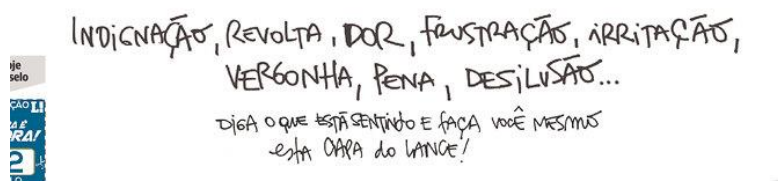 INDIGNAÇÃO, REVOLTA, DOR, FRUSTRAÇÃO, iRRiTAÇÃO,
VERGONHA, PENA, DESiLUSÃO...
DiGA O QUE ESTÁ SENTINDO E FAÇA VOCÊ MESMO
esta CAPA do LANCE!
je
selo
ÇÃO L!
A É
RA!
2